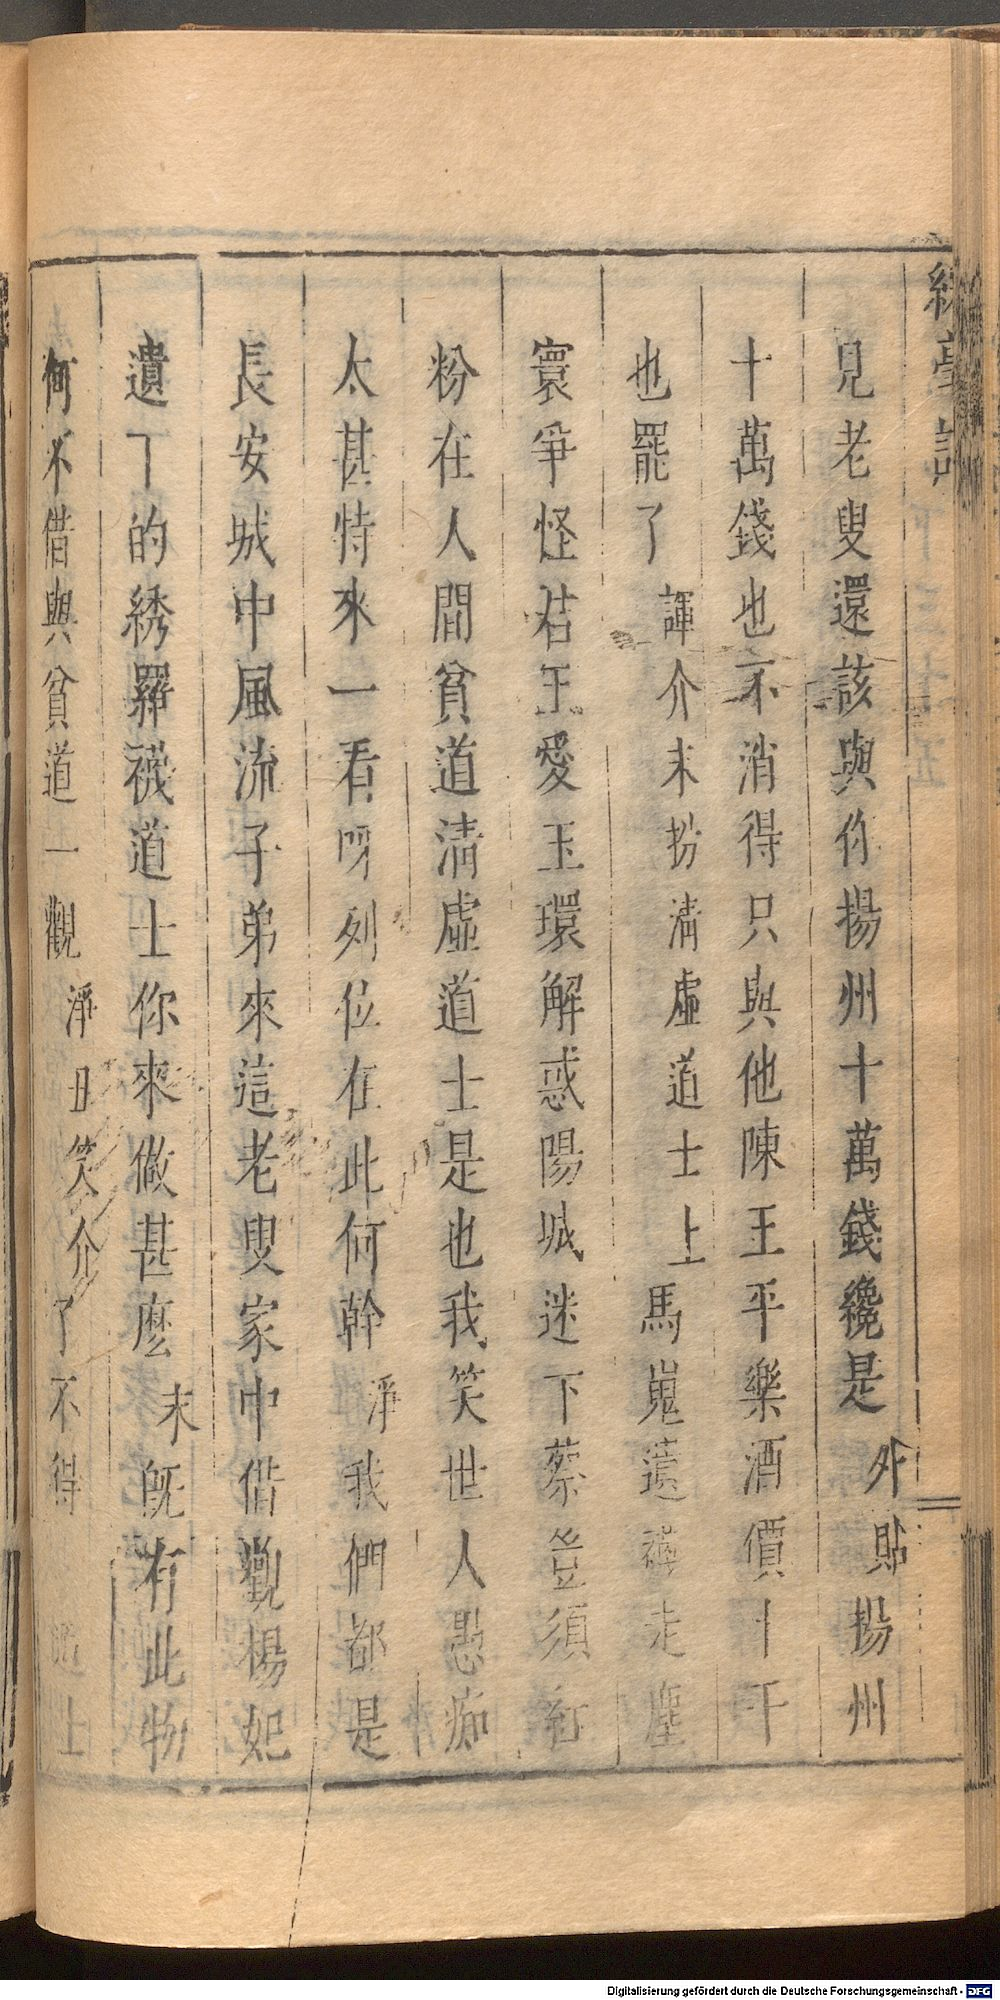 見老叟還該與你揚州十萬錢纔是 外貼揚州
十萬錢也不消得只與他陳王平樂酒價十千
也罷了 諢介末扮清虛道士上 馬嵬遺襪走塵
寰爭怪君王愛玉環解惑陽城迷下蔡豈須紅
粉在人間貧道清虛道士是也我笑世人愚痴
太甚特來一看呀列位在此何幹 淨 我們都是
長安城中風流子弟來這老叟家中借觀楊妃
遺下的綉羅襪道士你來做甚麽 末 既有此物
何不借與貧道一觀 淨丑笑介 了不得 上
Digitalisierung gefördert durch die Deutsche Forschungsgemeinschaft - DFG